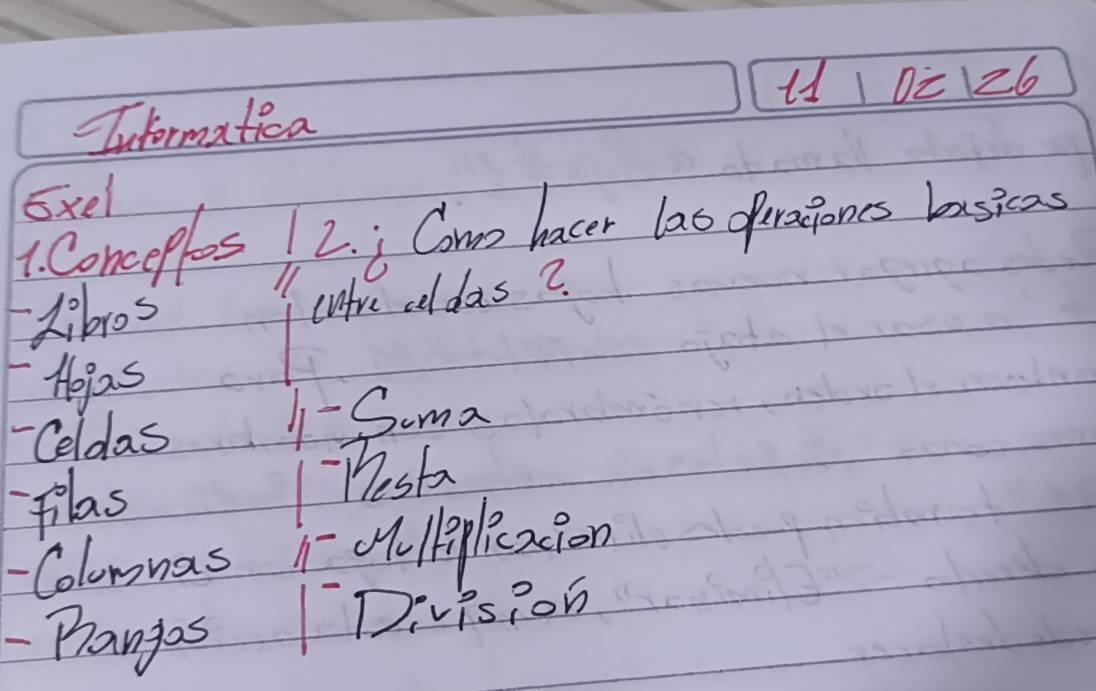 Informatica
11 | 02 | 26
Exel
1. Conceptos
- Libros
- Hojas
- Celdas
- Filas
- Columnas
- Rangos
2. ¿Como hacer las operaciones basicas
entre celdas?
- Suma
- Resta
- Multiplicacion
- División